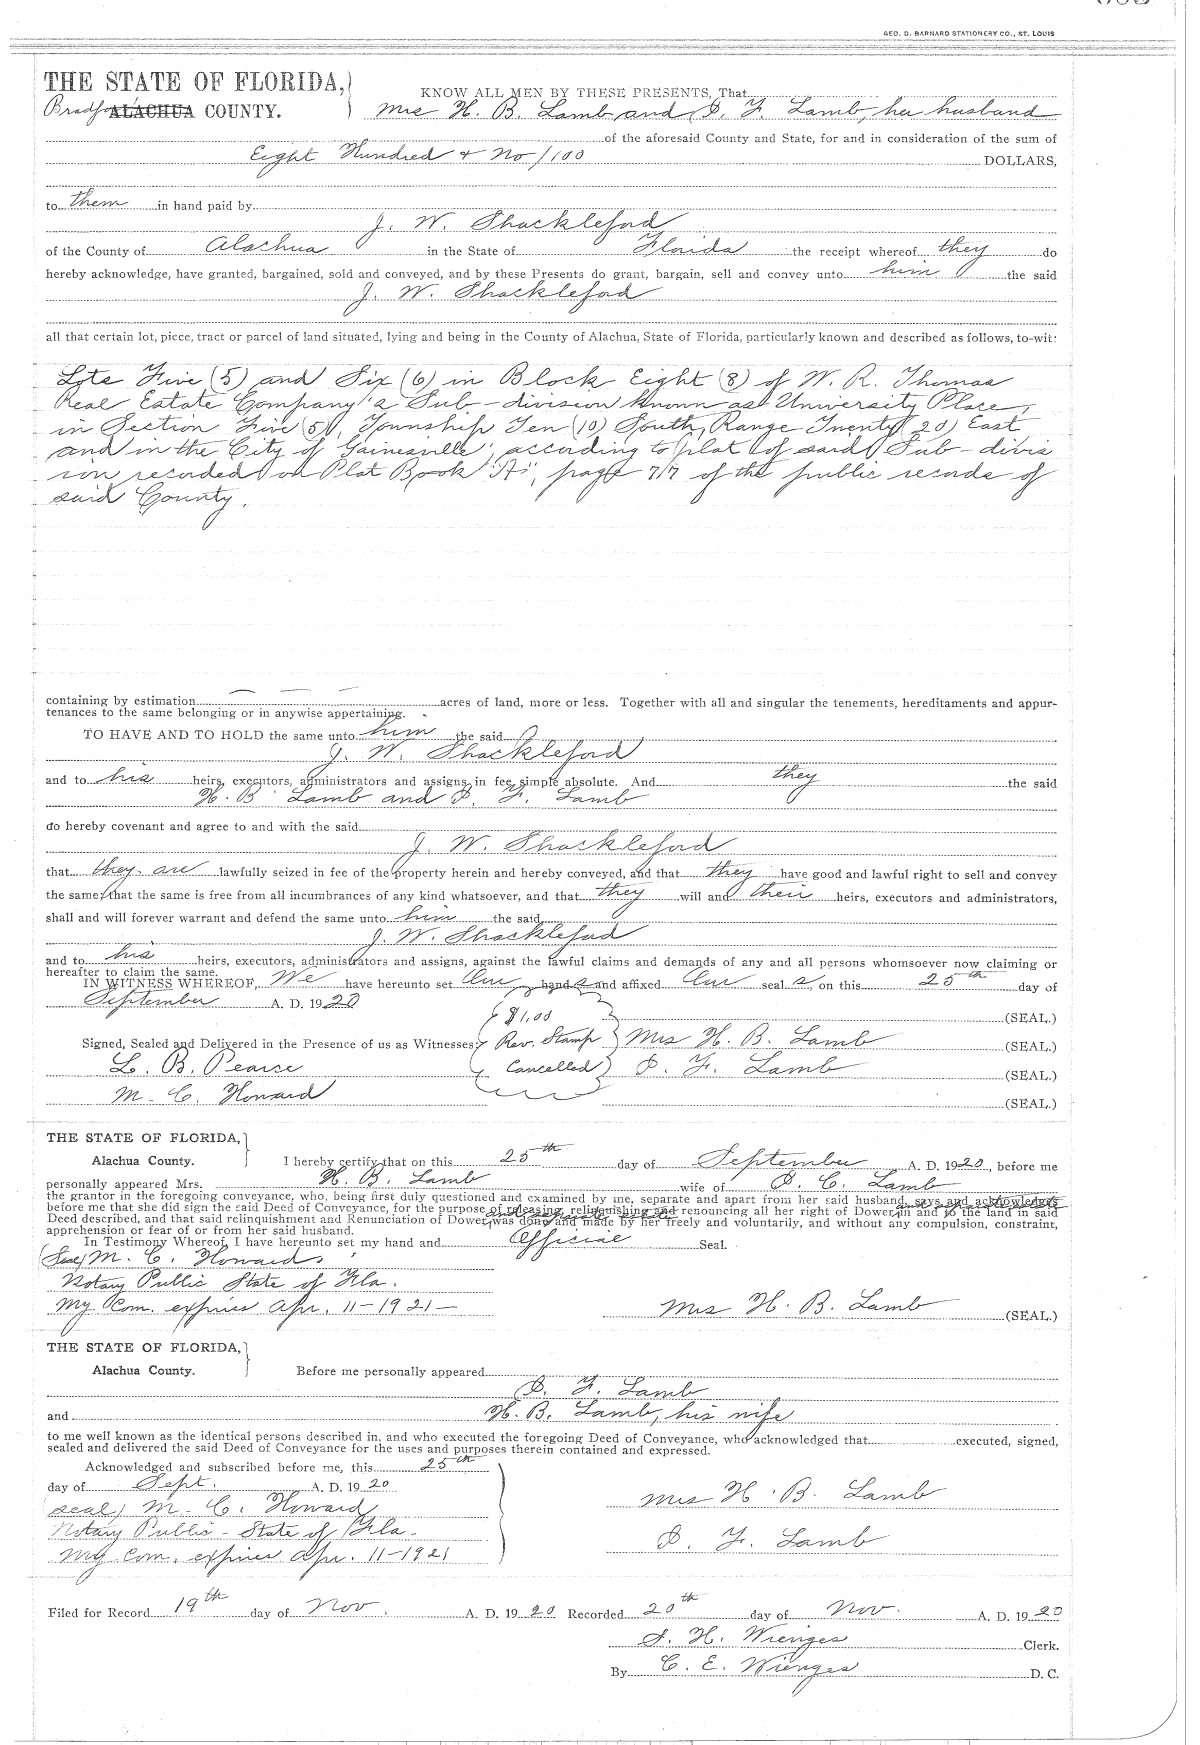 GEO. D. BARNARD STATIONERY CO., ST. LOUIS
THE STATE OF FLORIDA,
KNOW ALL MEN BY THESE PRESENTS, That
Bradf ALACHUA COUNTY. Mrs H. B. Lamb and F. Lamb, her husband
of the aforesaid County and State, for and in consideration of the sum of
Eight Hundred & No/100 DOLLARS,
to them in hand paid by
J. W. Shackleford
of the County of Alachua in the State of Florida the receipt whereof they do
hereby acknowledge, have granted, bargained, sold and conveyed, and by these Presents do grant, bargain, sell and convey unto him the said
J. W. Shackleford
all that certain lot, piece, tract or parcel of land situated, lying and being in the County of Alachua, State of Florida, particularly known and described as follows, to-wit:
Lots Five (5) and Six (6) in Block Eight (8) of W. R. Thomas
Real Estate Company's Sub-division known as University Place,
in Section Five (5), Township Ten (10) South, Range Twenty (20) East
and in the City of Gainesville, according to plat of said Sub-divis
ion recorded on Plat Book "A", page 77 of the public records of
said County.
containing by estimation — — — acres of land, more or less. Together with all and singular the tenements, hereditaments and appur-
tenances to the same belonging or in anywise appertaining.
TO HAVE AND TO HOLD the same unto him the said
J. W. Shackleford
and to his heirs, executors, administrators and assigns, in fee simple absolute. And they the said
H. B. Lamb and F. Lamb
do hereby covenant and agree to and with the said
J. W. Shackleford
that they are lawfully seized in fee of the property herein and hereby conveyed, and that they have good and lawful right to sell and convey
the same; that the same is free from all incumbrances of any kind whatsoever, and that they will and their heirs, executors and administrators,
shall and will forever warrant and defend the same unto him the said
J. W. Shackleford
and to his heirs, executors, administrators and assigns, against the lawful claims and demands of any and all persons whomsoever now claiming or
hereafter to claim the same.
IN WITNESS WHEREOF, We have hereunto set Our hand s and affixed Our seal s on this 25th day of
September A. D. 1920
$1.00 (SEAL.)
Signed, Sealed and Delivered in the Presence of us as Witnesses: Rev. Stamp Mrs H. B. Lamb (SEAL.)
L. B. Pearce Cancelled F. Lamb (SEAL.)
M. C. Howard (SEAL.)
THE STATE OF FLORIDA,
Alachua County. I hereby certify that on this 25th day of September A. D. 1920, before me
personally appeared Mrs. H. B. Lamb wife of C. Lamb
the grantor in the foregoing conveyance, who, being first duly questioned and examined by me, separate and apart from her said husband, says and acknowledges
before me that she did sign the said Deed of Conveyance, for the purpose of releasing, relinquishing and renouncing all her right of Dower in and to the land in said
Deed described, and that said relinquishment and Renunciation of Dower, was done and made by her freely and voluntarily, and without any compulsion, constraint,
apprehension or fear of or from her said husband.
In Testimony Whereof, I have hereunto set my hand and Official Seal.
(Seal) M. C. Howard.
Notary Public State of Fla.
My Com. expires Apr. 11-1921- Mrs H. B. Lamb (SEAL.)
THE STATE OF FLORIDA,
Alachua County. Before me personally appeared
F. Lamb
and H. B. Lamb, his wife
to me well known as the identical persons described in, and who executed the foregoing Deed of Conveyance, who acknowledged that executed, signed,
sealed and delivered the said Deed of Conveyance for the uses and purposes therein contained and expressed.
Acknowledged and subscribed before me, this 25th
day of Sept. A. D. 1920
(seal) M. C. Howard Mrs H. B. Lamb
Notary Public - State of Fla.
My Com. expires Apr. 11-1921 F. Lamb
Filed for Record 19th day of Nov. A. D. 1920 Recorded 20th day of Nov. A. D. 1920
H. Wienges Clerk.
By C. E. Wienges D. C.